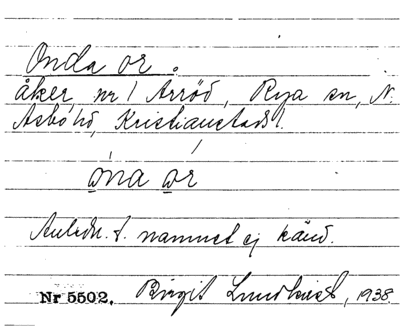 Onda or.
åker, nr 1 Arröd, Rya sn, N.
Åsbo hd, Kristianstads l.
o̲na o̲r
Anledn. t. namnet ej känd.
Nr 5502. Birgit Lundkvist, 1938.